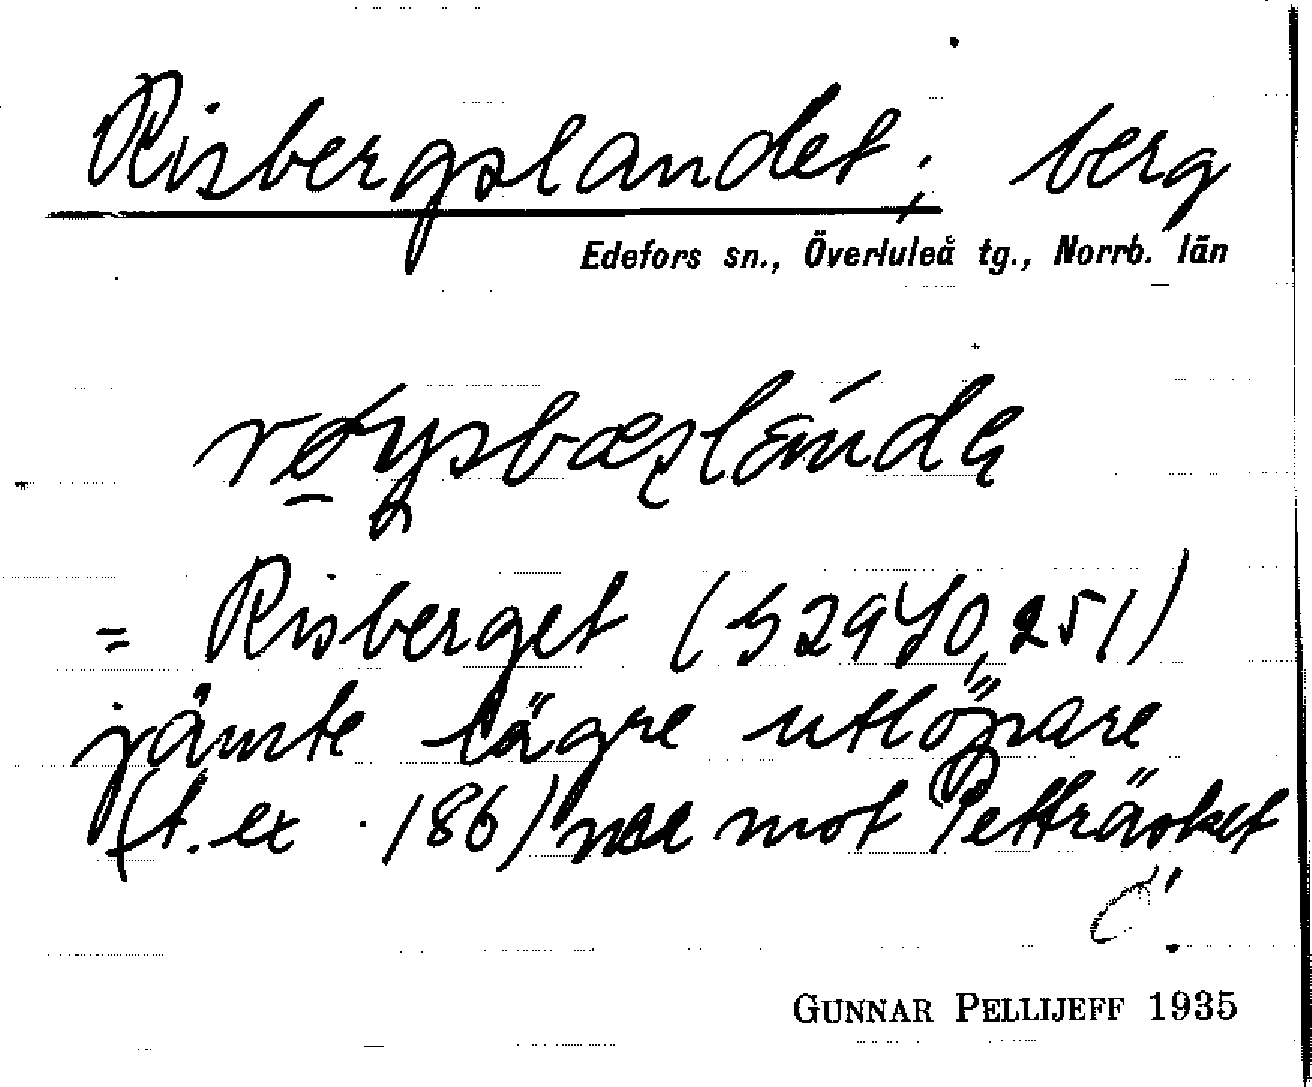 Risbergslandet; berg
Edefors sn., Överluleå tg., Norrb. län
= Risberget (S29Y0,251)
jämte lägre utlöpare
(t. ex. 186) mot Petträsket
GUNNAR PELLIJEFF 1935